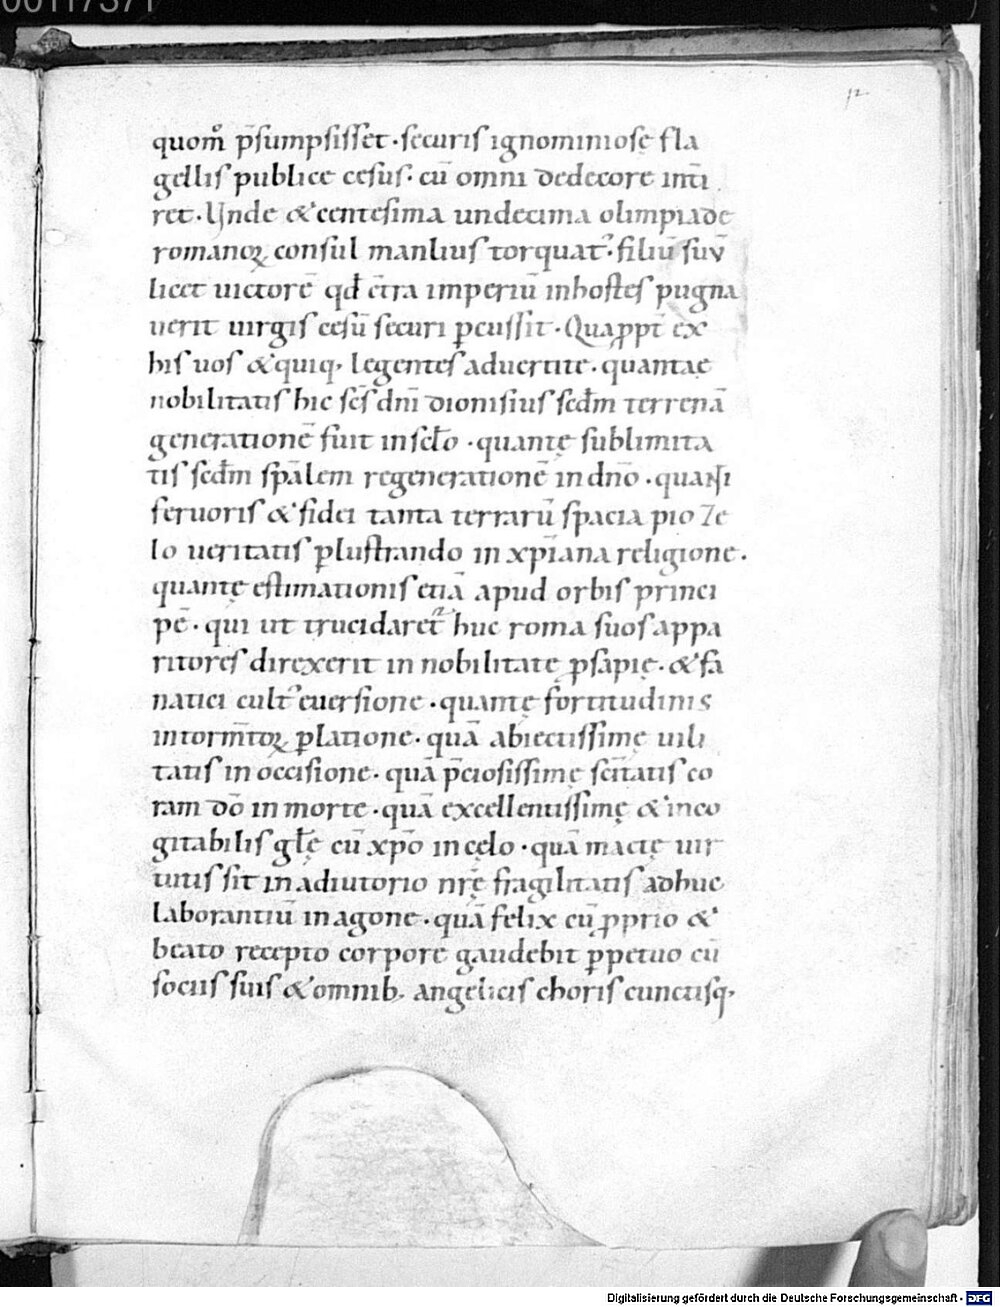 00117371
12
quom̊ p̄sumpsisset · securis ignominiosę fla
gellis publice cesus · cū omni dedecore int̄i
ret · Unde & centesima undecima olimpiade
romanoꝝ consul manlius torquat᾿ · filiū suū
licet uictorē qđ ct̄ra imperiū in hostes pugna
uerit uirgis cesū securi ꝑcussit · Quaꝓpt̄ ex
his uos & quiq; legentes aduertite · quantae
nobilitatis hic sc̄s dn̄i dionisius scđm terrenā
generationē fuit in sclo · quantę sublimita
tis scđm sp̄alem regenerationē in dn̄o · quanti
feruoris & fidei tanta terrarū spacia pio ze
lo ueritatis ꝑlustrando in xp̄iana religione ·
quantę estimationis etiā apud orbis princi
pē · qui ut trucidaret᷑ huc roma suos appa
ritores direxerit in nobilitate ꝓsapię · & fa
natici cult᾿ euersione · quantę fortitudinis
in torm̄toꝝ ꝑlatione · quā abiectissimę uili
tatis in occisione · quā p̄ciosissimę sc̄itatis co
ram dō in morte · quā excellentissimę & inco
gitabilis glę cū xp̄o in cęlo · quā mactę uir
tutis sit in adiutorio nr̄ę fragilitatis adhuc
laborantiū in agone · quā felix cū ꝓprio &
beato recepto corpore gaudebit ꝑpetuo cū
sociis suis & omnib; angelicis choris cunctisq;
Digitalisierung gefördert durch die Deutsche Forschungsgemeinschaft - DFG